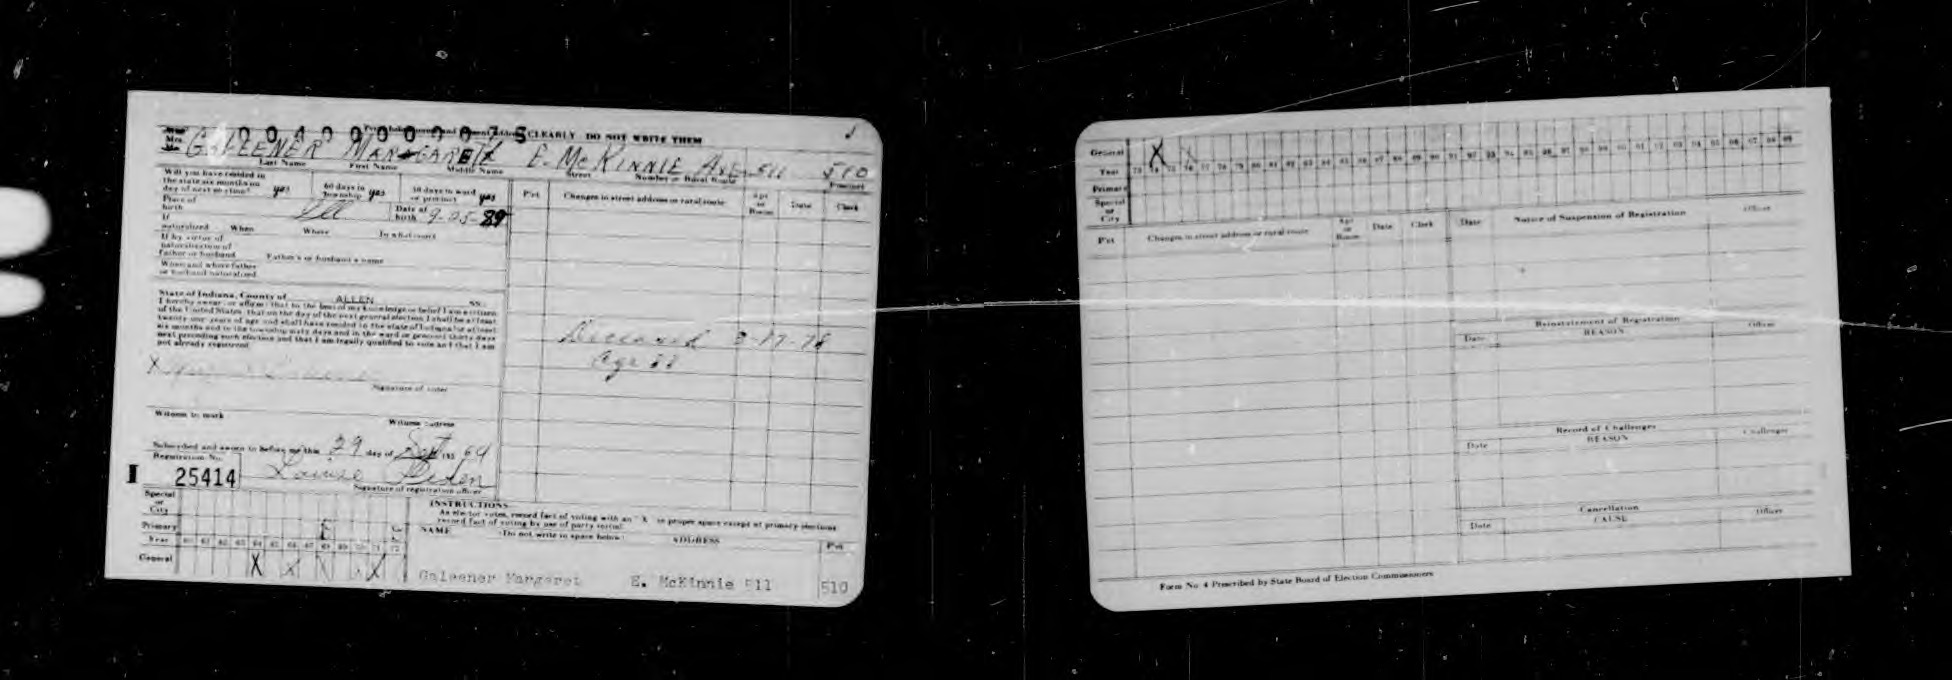 CLEARLY DO NOT WRITE THEM
Mrs. GALEENER MARGARET E. McKINNIE AVE. 511 510
Last Name First Name Middle Name Street Number or Rural Route Precinct
Will you have resided in the state six months on day of next election? yes 60 days in Township yes 30 days in ward or precinct yes
Place of birth
Date of birth 9-25-89
If naturalized When Where In what court
If by virtue of naturalization of father or husband Father's or husband's name
When and where father or husband naturalized
P'ct Changes in street address or rural route Apt or Room Date Clerk
State of Indiana, County of ALLEN SS:
I hereby swear or affirm that to the best of my knowledge or belief I am a citizen
of the United States, that on the day of the next general election I shall be at least
twenty-one years of age and shall have resided in the state of Indiana for at least
six months and in the township sixty days and in the ward or precinct thirty days
next preceding such election and that I am legally qualified to vote and that I am
not already registered.
Deceased
Age 88
X
Signature of voter
Witness to mark
Witness address
Subscribed and sworn to before me this 29 day of Sept 19 64
Registration No.
I 25414 Louise
Signature of registration officer
Special or City
Primary
Year 60 61 62 63 64 65 66 67 68 69 70 71 72
General X X X X
INSTRUCTIONS
As elector votes, record fact of voting with an "X" in proper space except at primary elections
record fact of voting by use of party initial.
NAME (Do not write in space below) ADDRESS Pct
Galeener Margaret E. McKinnie 511 510
General X X
Year 73 74 75 76 77 78 79 80 81 82 83 84 85 86 87 88 89 90 91 92 93 94 95 96 97 98 99
Primary
Special or City
P'ct Changes in street address or rural route Apt or Room Date Clerk
Date Notice of Suspension of Registration Officer
Reinstatement of Registration
Date REASON Officer
Record of Challenges
Date REASON Challenger
Cancellation
Date CAUSE Officer
Form No. 4 Prescribed by State Board of Election Commissioners